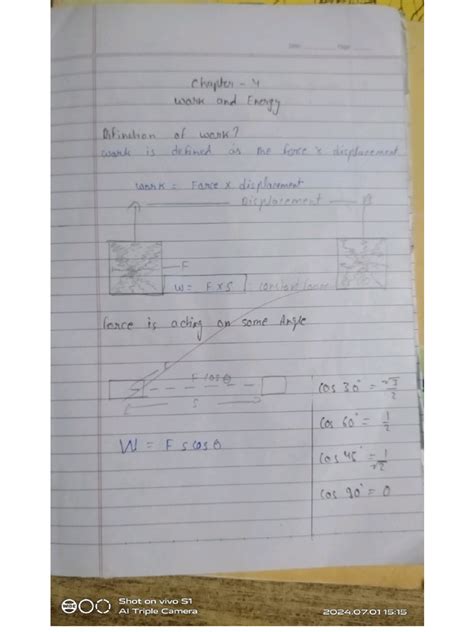 Date Page
Chapter - 4
Work and Energy
Difinetion of work?
work is defined as the force x displacement
work = Force x displacement
Displacement
B
F
W = F x S
constant force
force is acting on some Angle
F
F cosθ
S
W = F s cosθ
cos 30° = √3/2
cos 60° = 1/2
cos 45° = 1/√2
cos 90° = 0
Shot on vivo S1
AI Triple Camera
2024.07.01 15:15